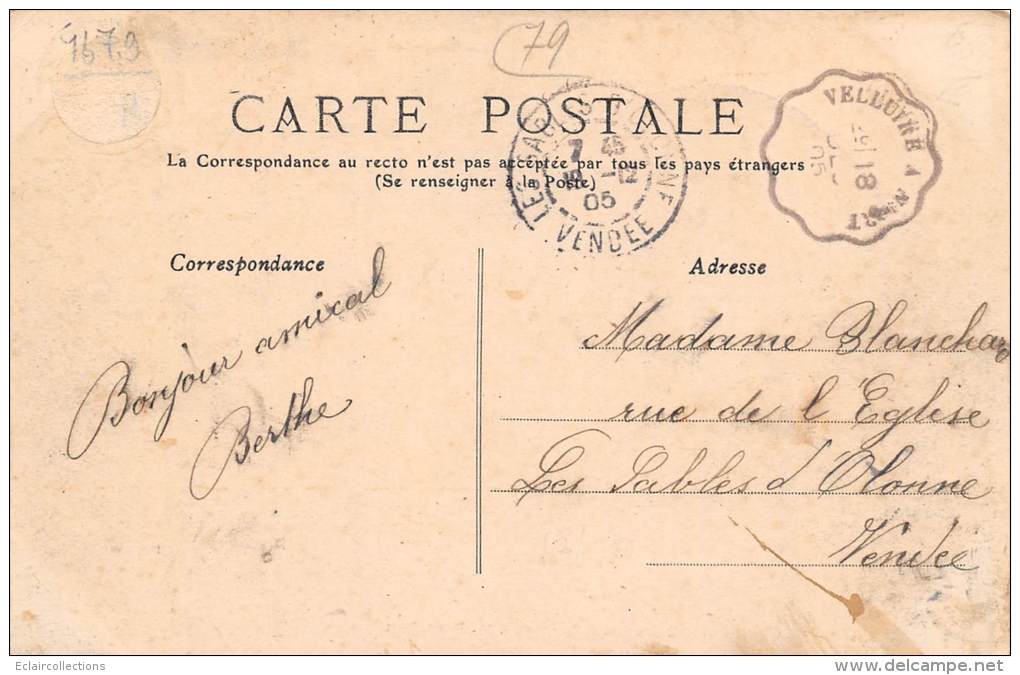 1679
79
CARTE POSTALE
La Correspondance au recto n'est pas acceptée par tous les pays étrangers
(Se renseigner à la Poste)
LES SABLES D'OLONNE
05
VENDÉE
VELLUIRE A NIORT
18
05
Correspondance
Adresse
Bonjour amical
Berthe
Madame Blanchard
rue de l'Eglise
Les Sables d'Olonne
Vendée
Eclaircollections
delcampe.net